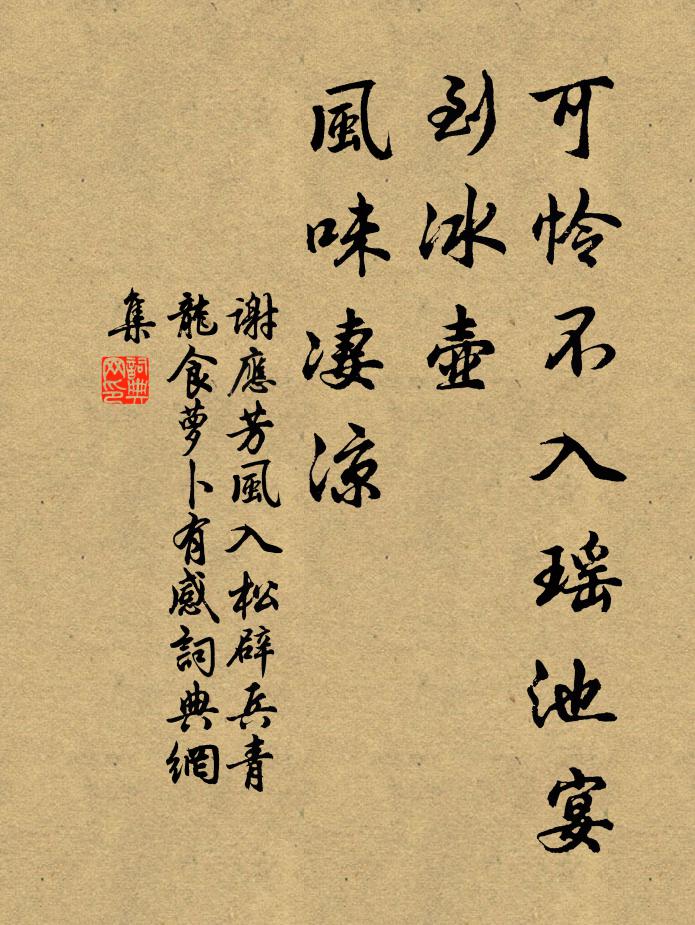 可怜不入瑶池宴
到冰壺
風味凄涼
谢應芳風入松辟兵青
龍食萝卜有感詞典網
集
詞典
网印